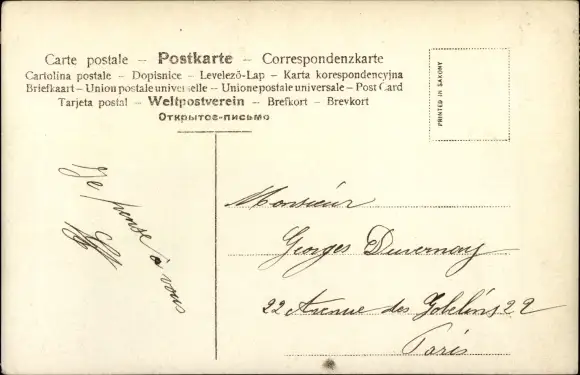 Carte postale – Postkarte – Correspondenzkarte
Cartolina postale – Dopisnice – Levelező-Lap – Karta korespondencyjna
Briefkaart – Union postale universelle – Unione postale universale – Post Card
Tarjeta postal – Weltpostverein – Brefkort – Brevkort
Открытое-письмо
PRINTED IN SAXONY
Je pense à vous
Monsieur
Georges Duvernay
22 Avenue des Gobelins 22
Paris